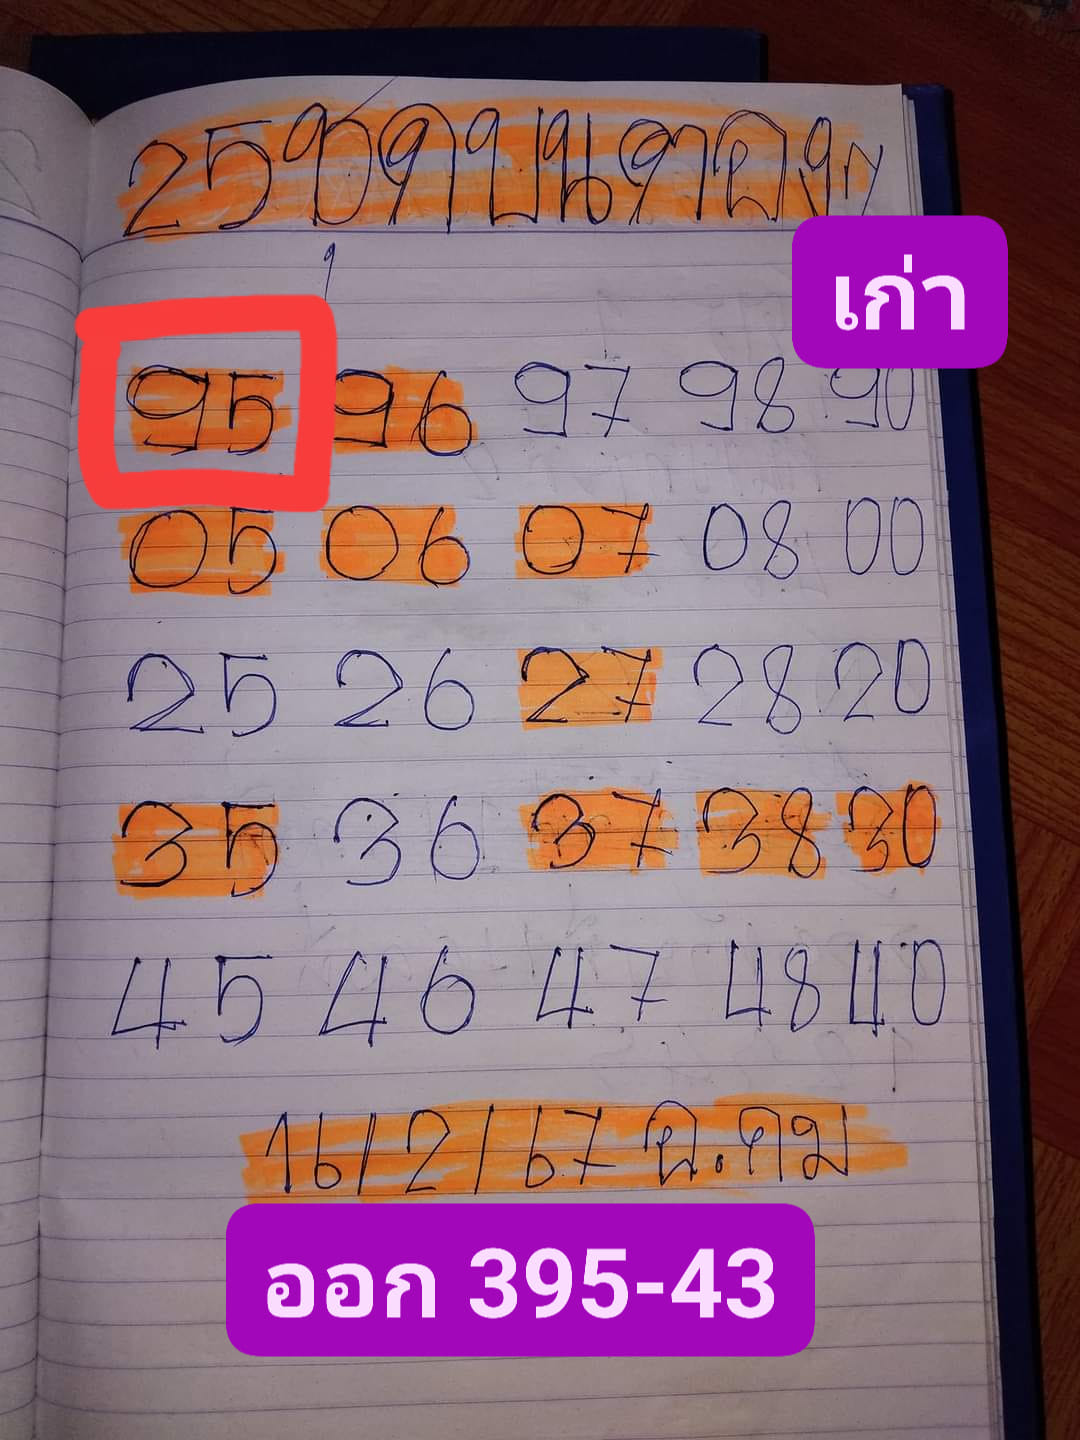 25ชุดบนตรงๆ
เก่า
95 96 97 98 90
05 06 07 08 00
25 26 27 28 20
35 36 37 38 30
45 46 47 48 40
16/2/67 ฉ.คม
ออก 395-43